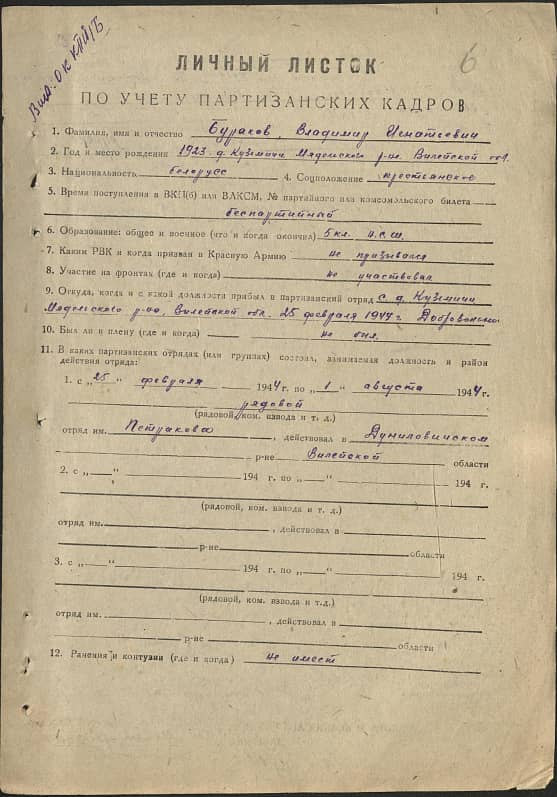 6
ЛИЧНЫЙ ЛИСТОК
ПО УЧЕТУ ПАРТИЗАНСКИХ КАДРОВ
1. Фамилия, имя и отчество Бураков, Владимир Игнатьевич
2. Год и место рождения 1923 д. Куземичи Мядельского р-на Вилейской обл.
3. Национальность белорусс 4. Соцположение крестьянское
5. Время поступления в ВКП(б) или ВЛКСМ, № партийного или комсомольского билета
беспартийный
6. Образование: общее и военное (что и когда окончил) 5 кл. н.с.ш.
7. Каким РВК и когда призван в Красную Армию не призывался
8. Участие на фронтах (где и когда) не участвовал
9. Откуда, когда и с какой должности прибыл в партизанский отряд с д. Куземичи
Мядельского р-на, Вилейской обл. 25 февраля 1944 г. Добровольно
10. Был ли в плену (где и когда) не был.
11. В каких партизанских отрядах (или группах) состоял, занимаемая должность и район
действия отряда:
1. с „25“ февраля 1944 г. по „1“ августа 1944 г.
рядовой
(рядовой, ком. взвода и т. д.)
отряд им. Петракова, действовал в Дуниловичском
р-не Вилейской области
2. с „ “ 194 г. по „ “ 194 г.
(рядовой, ком. взвода и т. д.)
отряд им. , действовал в
р-не области
3. с „ “ 194 г. по „ “ 194 г.
(рядовой, ком. взвода и т.д.)
отряд им. , действовал в
р-не области
12. Ранения и контузии (где и когда) не имеет